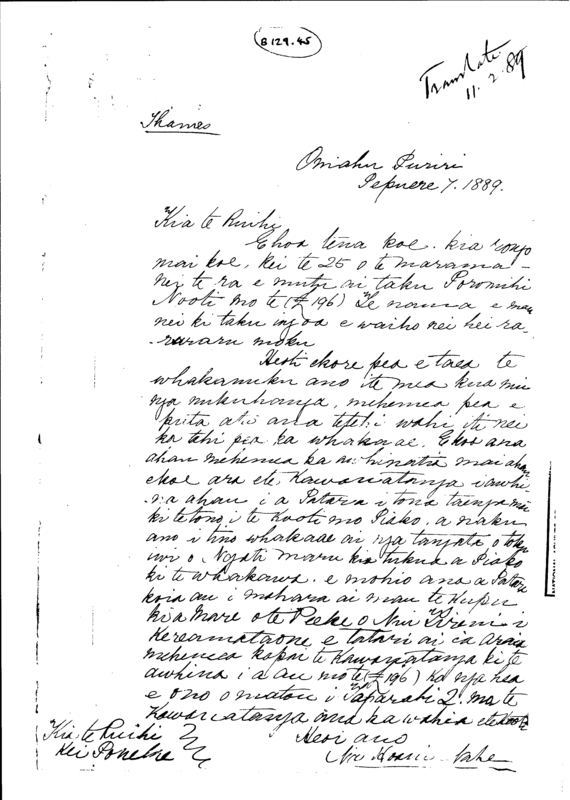 B129.45
Translate
11.2.89
Thames
Omahu Puriri
Pepuere 7. 1889.
Kia te Ruihi
Ehoa tena koe. kia rongo
mai koe, kei te 25 o te marama
nei te ra e mutu ai taku Poromihi
Nooti mo te (£196) Te nama e mau
nei ki taku ingoa e waiho nei hei ra-
raruraru moku
Heoti ekore pea e taea te
whakanuku ano i te mea kua
nga nukuhanga, mehemea pea e
ata ana tetehi wahi iti nei
ka tehi pea ka whakaae. Ekoa ana
ahau mehemea ka awhinatia mai ahau
ekoe ara ete Kawanatanga i awhi-
na ahau i a Patara i tona taenga mai
ki te tono i te Kooti mo Piako, a naku
ano i tino whakaae ai nga tangata o toku
iwi o Ngati maru kia tukua a Piako
ki te whakawa. e mohio ana a Patara
koia au i mahara ai mau te kupu
kia Mare o te Peeke o Niu Tireni i
Kereamataone e tatari ai ia araia
mehemea kapai te Kawanatanga ki te
awhina i a au mo te (£196) ka nga hea
e ono o matou i Taparahi 2. ma te
Kawanatanga ka wahia
Kia te Ruihi
Kei Poneke
Heoi ano